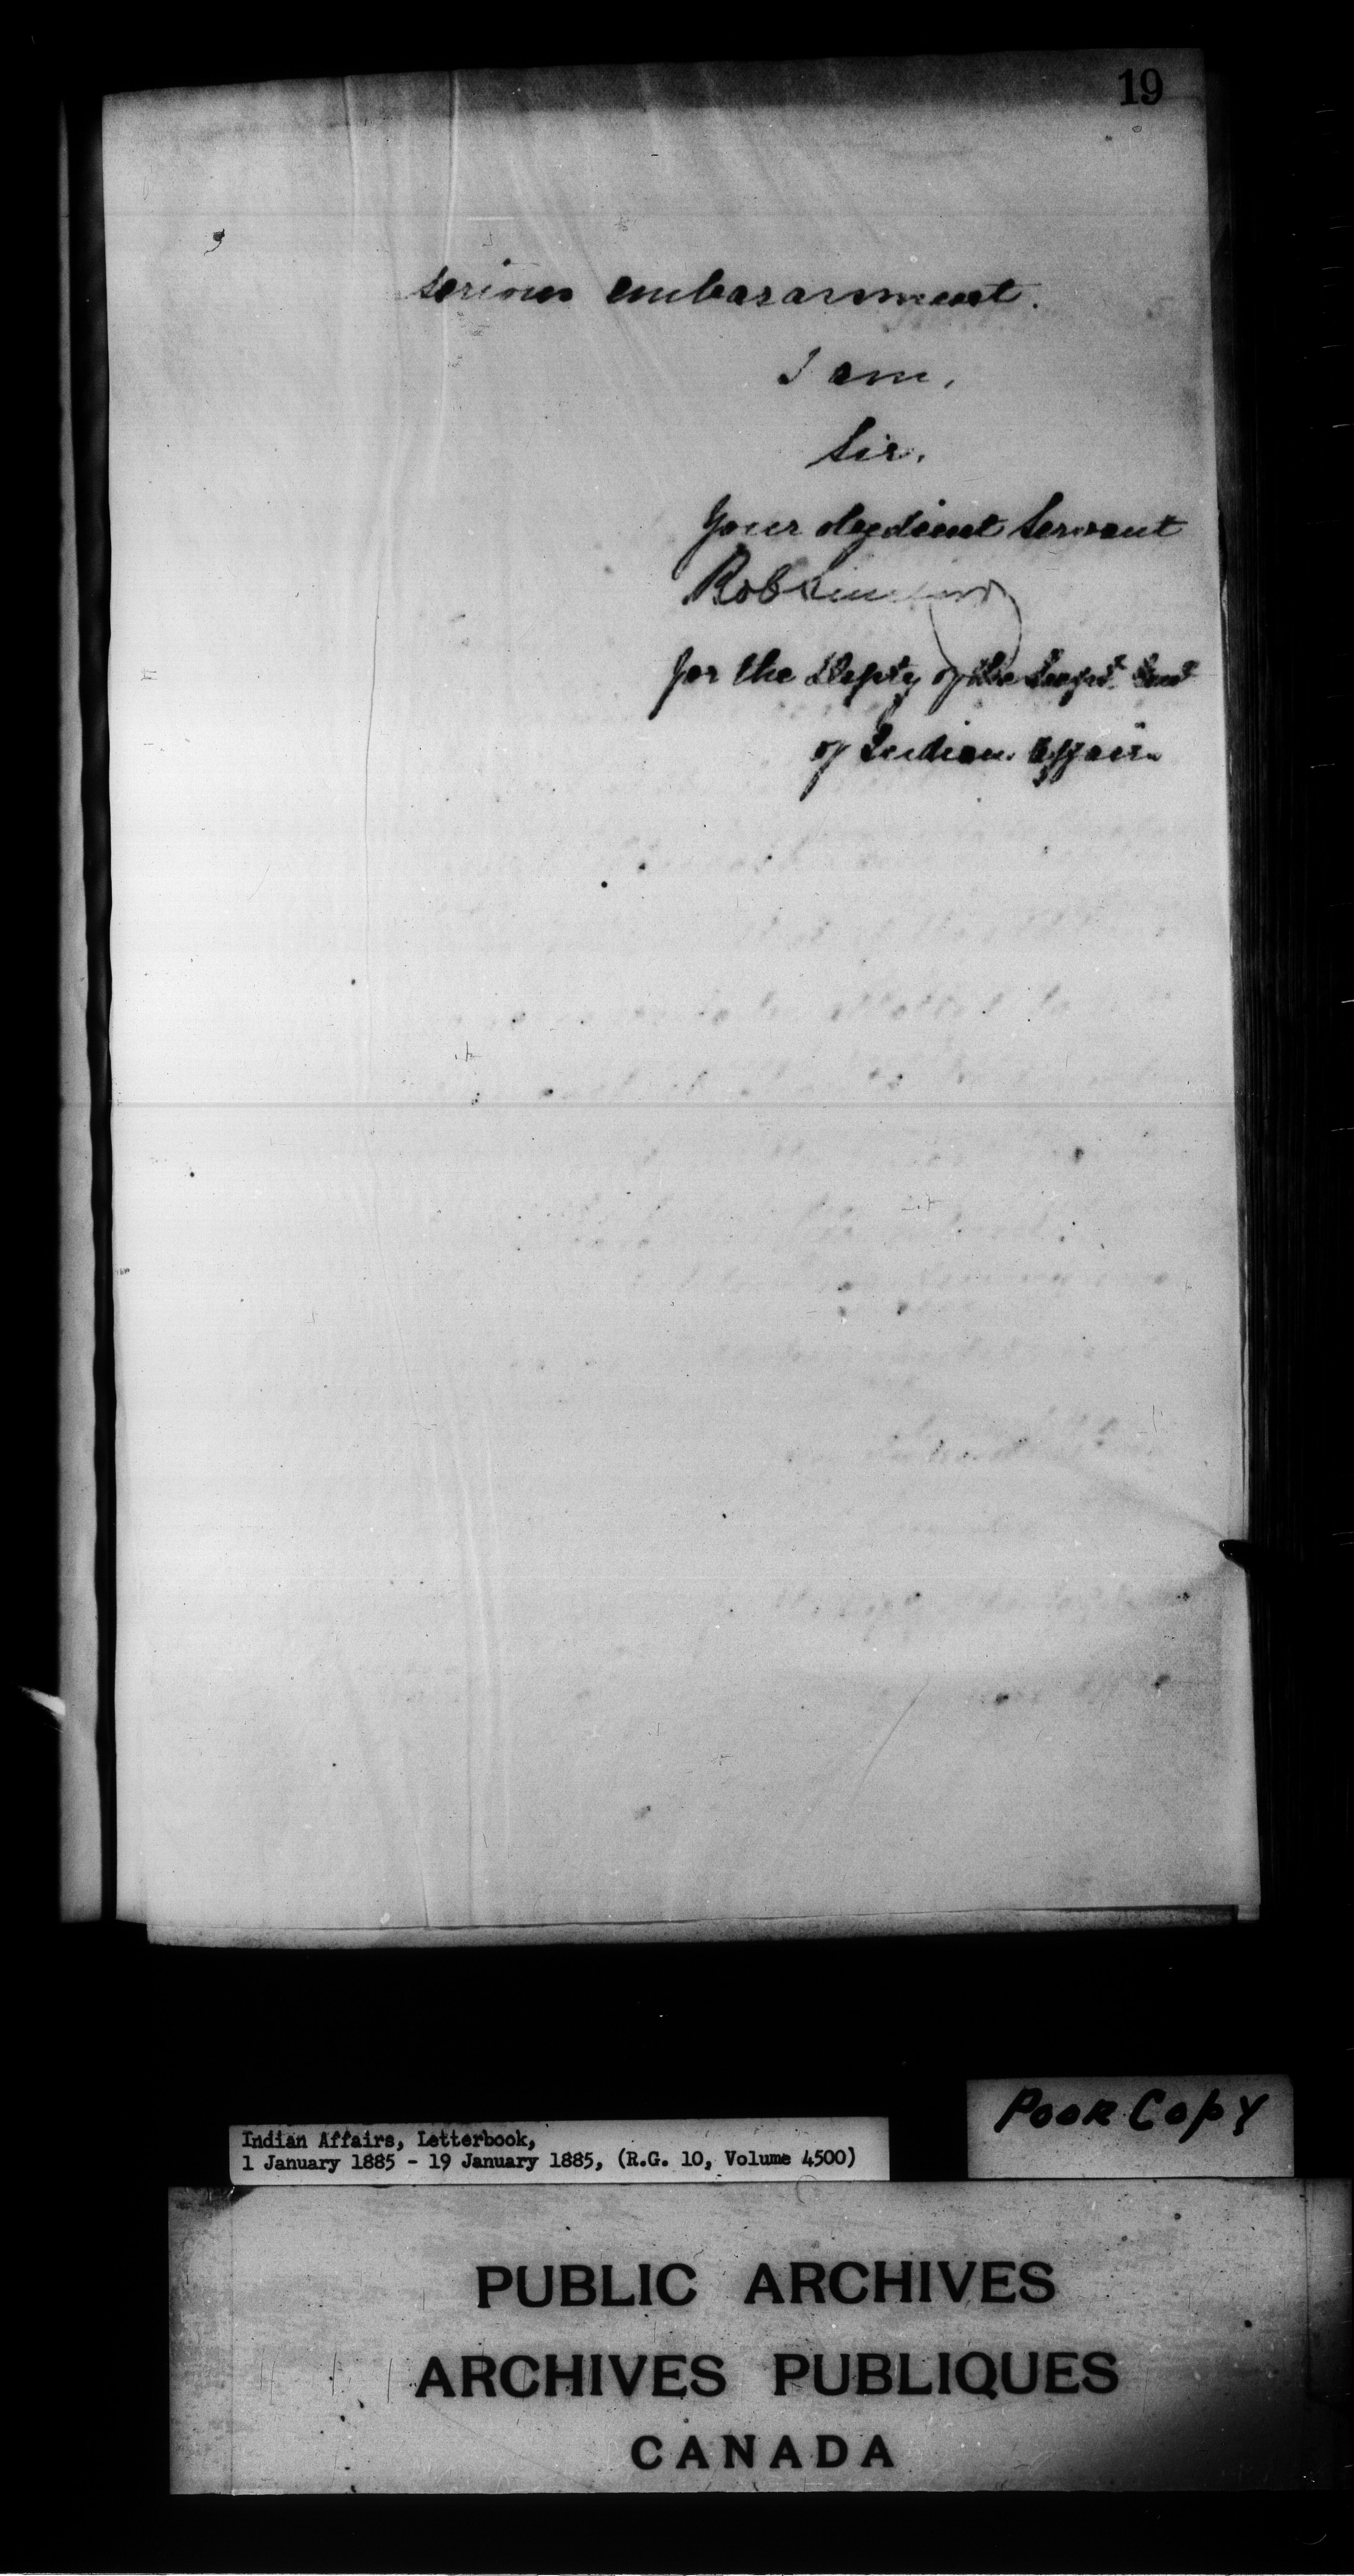 19
serious embarasment.
I am,
Sir,
Your obedient Servant
Rob Sinclair
for the Depty of the Supt. Genl
of Indian Affairs
Poor Copy
Indian Affairs, Letterbook,
1 January 1885 - 19 January 1885, (R.G. 10, Volume 4500)
PUBLIC ARCHIVES
ARCHIVES PUBLIQUES
CANADA